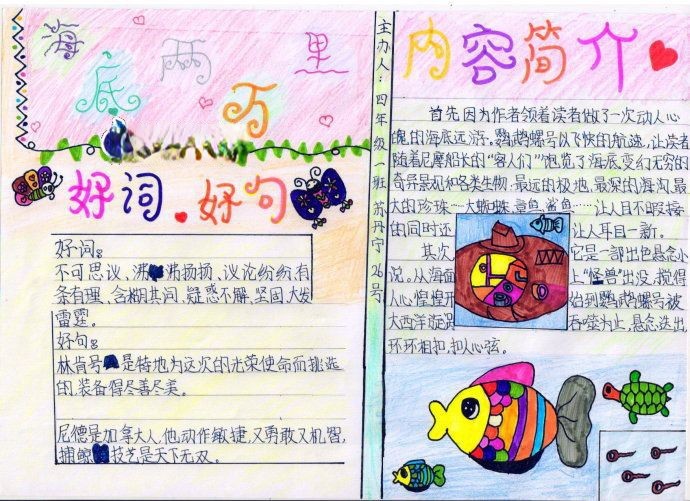 海底两万里
好词好句
好词：
不可思议、沸沸扬扬、议论纷纷、有
条有理、含糊其词、疑惑不解、坚固、大发
雷霆。
好句：
林肯号是特地为这次的光荣使命而挑选
的，装备得尽善尽美。
尼德是加拿大人，他动作敏捷，又勇敢又机智，
捕鲸技艺是天下无双。
主办人：四年级一班 苏丹宁 26号
内容简介
首先因为作者领着读者做了一次动人心
魄的海底远游，鹦鹉螺号以飞快的航速，让读者
随着尼摩船长的“客人们”饱览了海底变幻无穷的
奇异景观和各类生物，最远的极地、最深的海沟、最
大的珍珠……大蜘蛛、章鱼、鲨鱼……让人目不暇接
的同时还 让人耳目一新。
其次 它是一部出色悬念小
说。从海面 上“怪兽”出没，搅得
人心惶惶开 始到鹦鹉螺号被
大西洋旋涡 吞噬为止，悬念迭出，
环环相扣，扣人心弦。